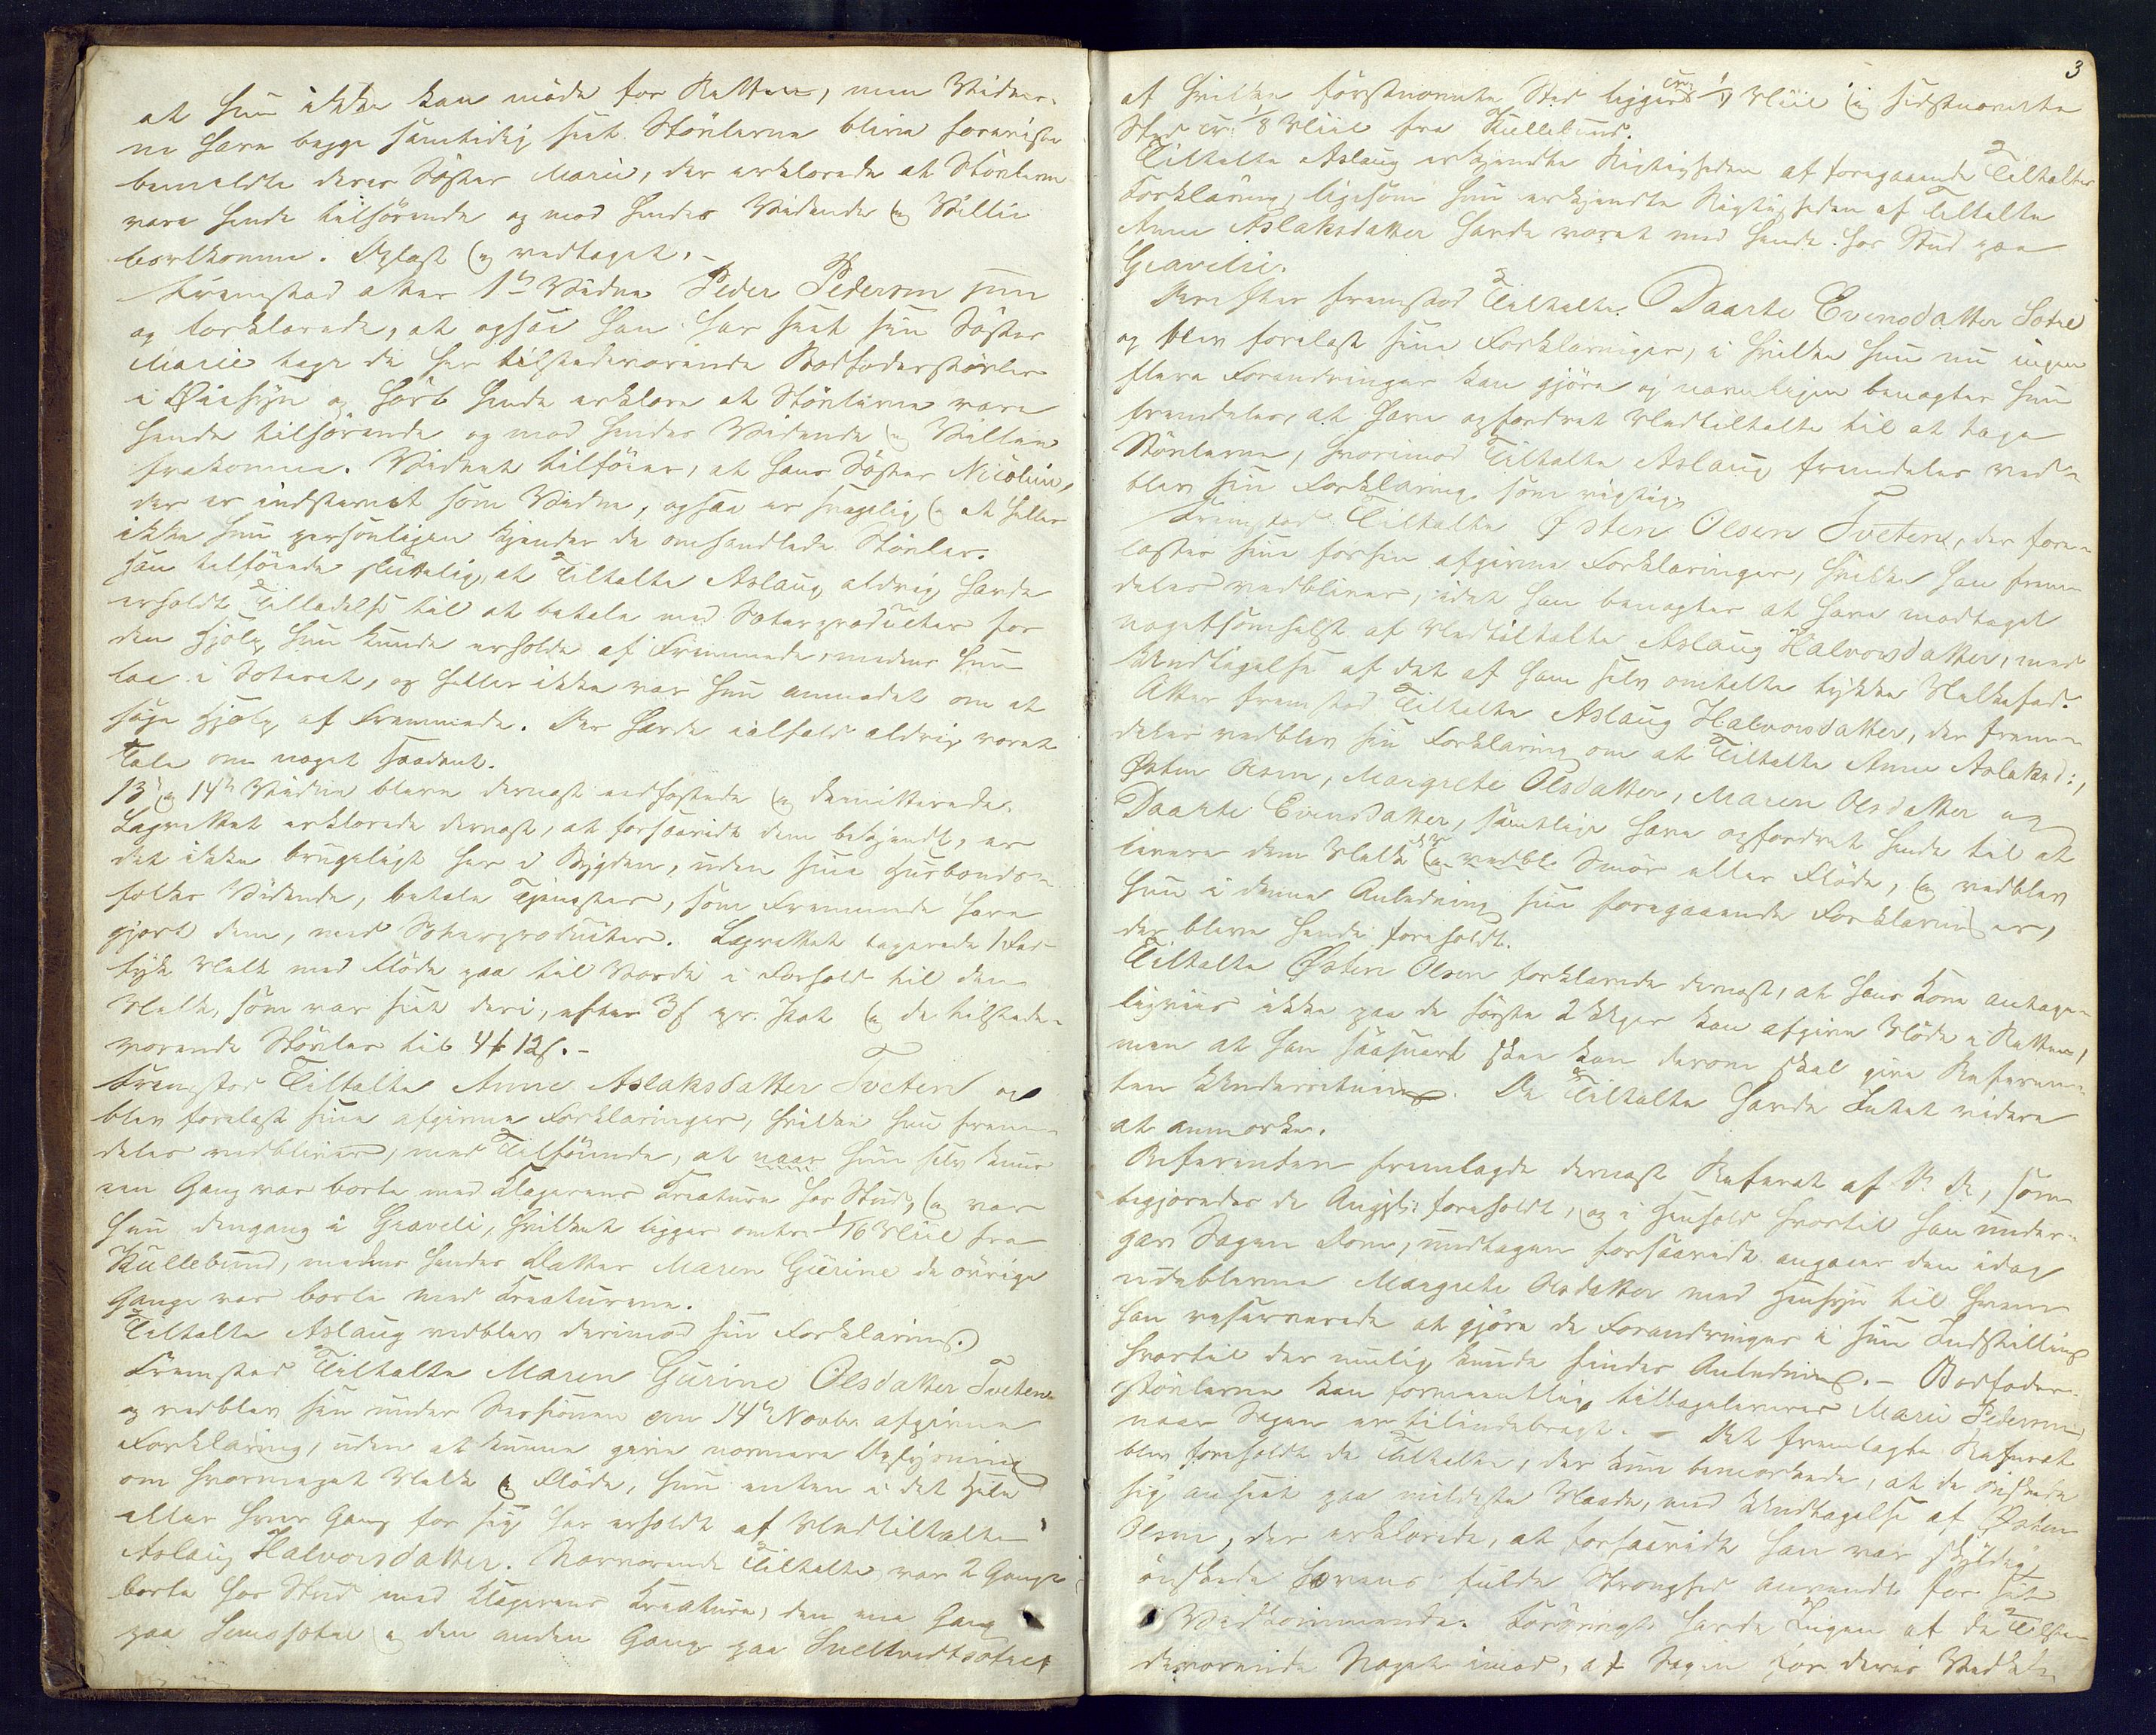 at hun ikke kan møde for Retten, men Vidner-
ne have begge samtidig seet Støvlerne blive foreviist
bemeldte deres Søster Marie, der erklærede at Støvlerne
vare hende tilhørende og mod hendes Vidende og Villie
bortkomne. Oplæst og vedtaget.-
Fremstod atter 1ste Vidne Peder Pedersen jun
og forklarede, at ogsaa han har seet sin Søster
Marie tage de her tilstedeværende Badfoderstøvler
i Øiesyn og hørt hende erklære at Støvlerne vare
hende tilhørende og mod hendes Vidende og Villie
frakomne. Vidnet tilføier, at hans Søster Nicoline,
der er indstevnet som Vidne, ogsaa er svagelig og at heller
ikke hun personligen kjender de omhandlede Støvler.
Han tilføiede sluttelig, at Tiltalte Aslaug aldrig havde
erholdt Tilladelse til at betale med Sæterproducter for
den Hjælp hun kunde erholde af Fremmede, medens hun
laa i Sæteren, og heller ikke var hun anmodet om at
søge Hjælp af Fremmede. Der havde ialfald aldrig været
Tale om noget saadant.
13de og 14de Vidne bleve dernæst edfæstede og demitterede.
Lagrettet erklærede dernæst, at forsaavidt dem bekjendt, er
det ikke brugeligt her i Bygden, uden sine Husbonds-
folks Vidende, betale Tjenester, som Fremmede have
gjort dem, med Sæterproducter. Lagrettet taxerede 1 Fad
tyk Melk med Fløde paa til Værdi i Forhold til den
Melk, som var siet deri, efter 3 s pr. Pot og de tilstede-
værende Støvler til 4 12 s.-
Fremstod Tiltalte Anne Aslaksdatter Tveten og
blev forelæst sine afgivne Forklaringer, hvilke hun frem-
deles vedbliver, med Tilføiende, at naar hun selv kuns
een Gang var borte med Klagerens Kreature hos Stud, og var
hun dengang i Graveli, hvilket ligger omtr. 1/16 Miil fra
Kullebund, medens hendes Datter Maren Gurine de øvrige
Gange var borte med Kreaturene.
Tiltalte Aslaug vedblev derimod sin Forklaring.
Fremstod Tiltalte Maren Gurine Olsdatter Tveten
og vedblev sin under Sessionen den 14de Novbr afgivne
Forklaring, uden at kunne give nærmere Oplysning
om hvormeget Melk og Fløde, hun enten i det Hele
eller hver Gang for sig har erholdt af Medtiltalte
Aslaug Halvorsdatter. Nærværende Tiltalte var 2 Gange
borte hos Stud med Klagerens Kreature, den ene Gang
paa Lemosæter og den anden Gang paa Sneltvedtsæter
3
af hvilke førstnævnte Sted ligger ca 1/4 Miil og sidstnævnte
Sted ca. 1/8 Miil fra Kullebund.
Tiltalte Aslaug erkjendte Rigtigheden af foregaaende Tiltaltes
Forklaring, ligesom hun erkjendte Rigtigheden af Tiltalte
Anne Aslaksdatter havde været med hende hos Stud paa
Gravelie.
Derefter fremstod Tiltalte Daarte Evensdatter Sotae
og blev forelæst sine Forklaringer, i hvilke hun nu ingen
flere Forandringer kan gjøre og navnligen benægter hun
fremdeles, at have opfordret Medtiltalte til at tage
Støvlerne, hvorimod Tiltalte Aslaug fremdeles ved-
blev sin Forklaring som rigtig.
Fremstod Tiltalte Østen Olsen Tveten, der fore-
læstes sine forhen afgivne Forklaringer, hvilke han frem-
deles vedbliver, idet han benægter at have modtaget
nogetsomhelst af Medtiltalte Aslaug Halvorsdatter, med
Undtagelse af det af ham selv omtalte tykke Melkefad.
Atter fremstod Tiltalte Aslaug Halvorsdatter, der frem-
deles vedblev sin Forklaring om at Tiltalte Anne Aslaksd:,
Østen Olsen, Margrete Olsdatter, Maren Olsdatter og
Daarte Evensdatter, samtlige have opfordret hende til at
levere dem Melk og vedbl. Smør eller Fløde, og vedblev
hun i denne Anledning sin foregaaende Forklaringer,
der bleve hende foreholdt.
Tiltalte Østen Olsen forklarede dernæst, at hans Kone antage-
ligviis ikke paa de første 2 Uger kan afgive Møde i Retten,
men at han saasnart skee kan derom skal give Referen-
ten Underretning. De Tiltalte havde Intet videre
at anmærke.
Referenten fremlagde dernæst Referat af D. D., som
begjæredes de Angjel: foreholdt, og i Henhold hvortil han under-
gav Sagen Dom, undtagen forsaavidt angaaer den idag
udeblevne Margrete Olsdatter med Hensyn til hvem
han reserverede at gjøre de Forandringer i sin Indstilling
hvortil der mulig kunde findes Anledning.- Badfoder-
støvlerne kan formeentlig tilbageleveres Marie Pedersen,
naar Sagen er tilendebragt.- Det fremlagte Referat
blev foreholdt de Tiltalte, der kun bemærkede, at de ønskede
sig anseet paa mildeste Maade, med Undtagelse af Østen
Olsen, der erklærede, at forsaavidt han var skyldig,
ønskede Lovens fulde Strenghed anvendt for sit
Vedkommende. Forøvrigt havde Ingen af de Tilste-
deværende Noget imod, at Sagen for deres Vedkom-